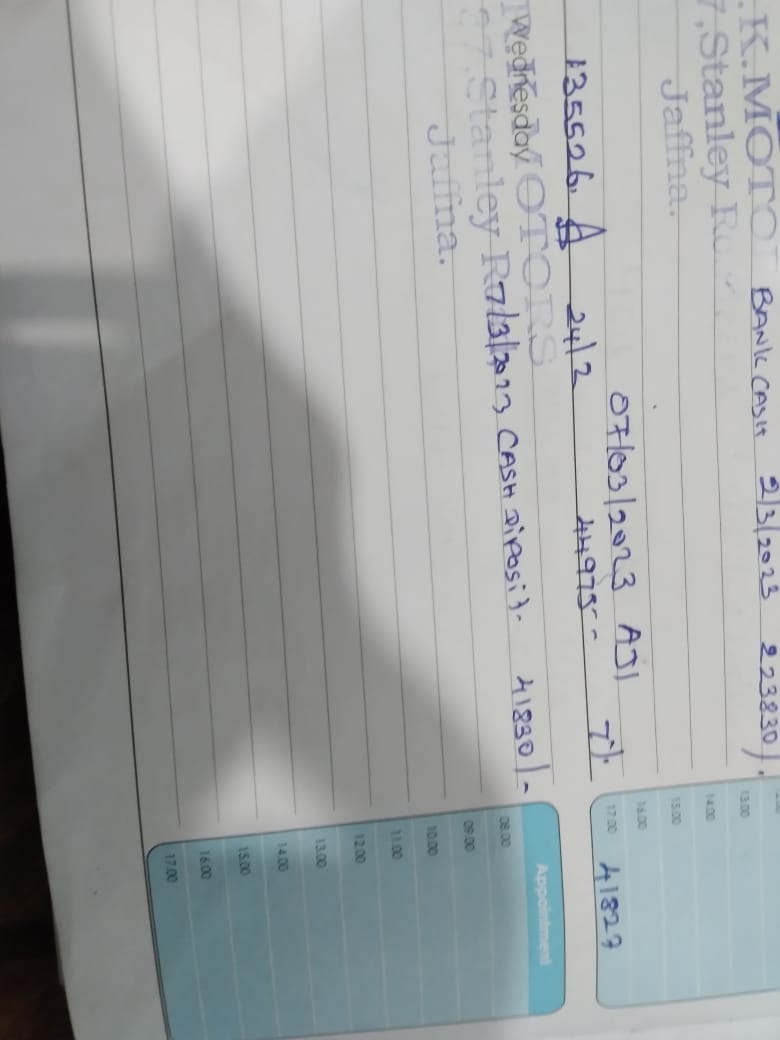 .K.MOTO BANK CASH 2/3/2023 223830/.
7,Stanley Ro
Jaffna.
13.00
14.00
15.00
16.00
07/03/2023 AJI
17.00 41827
135526. A 24/2 44975-- 7%
Wednesday
K. MOTORS
Appointment
97,Stanley R 7/3/2023 CASH Diposit. 41830/-
Jaffna.
08.00
09.00
10.00
11.00
12.00
13.00
14.00
15.00
16.00
17.00